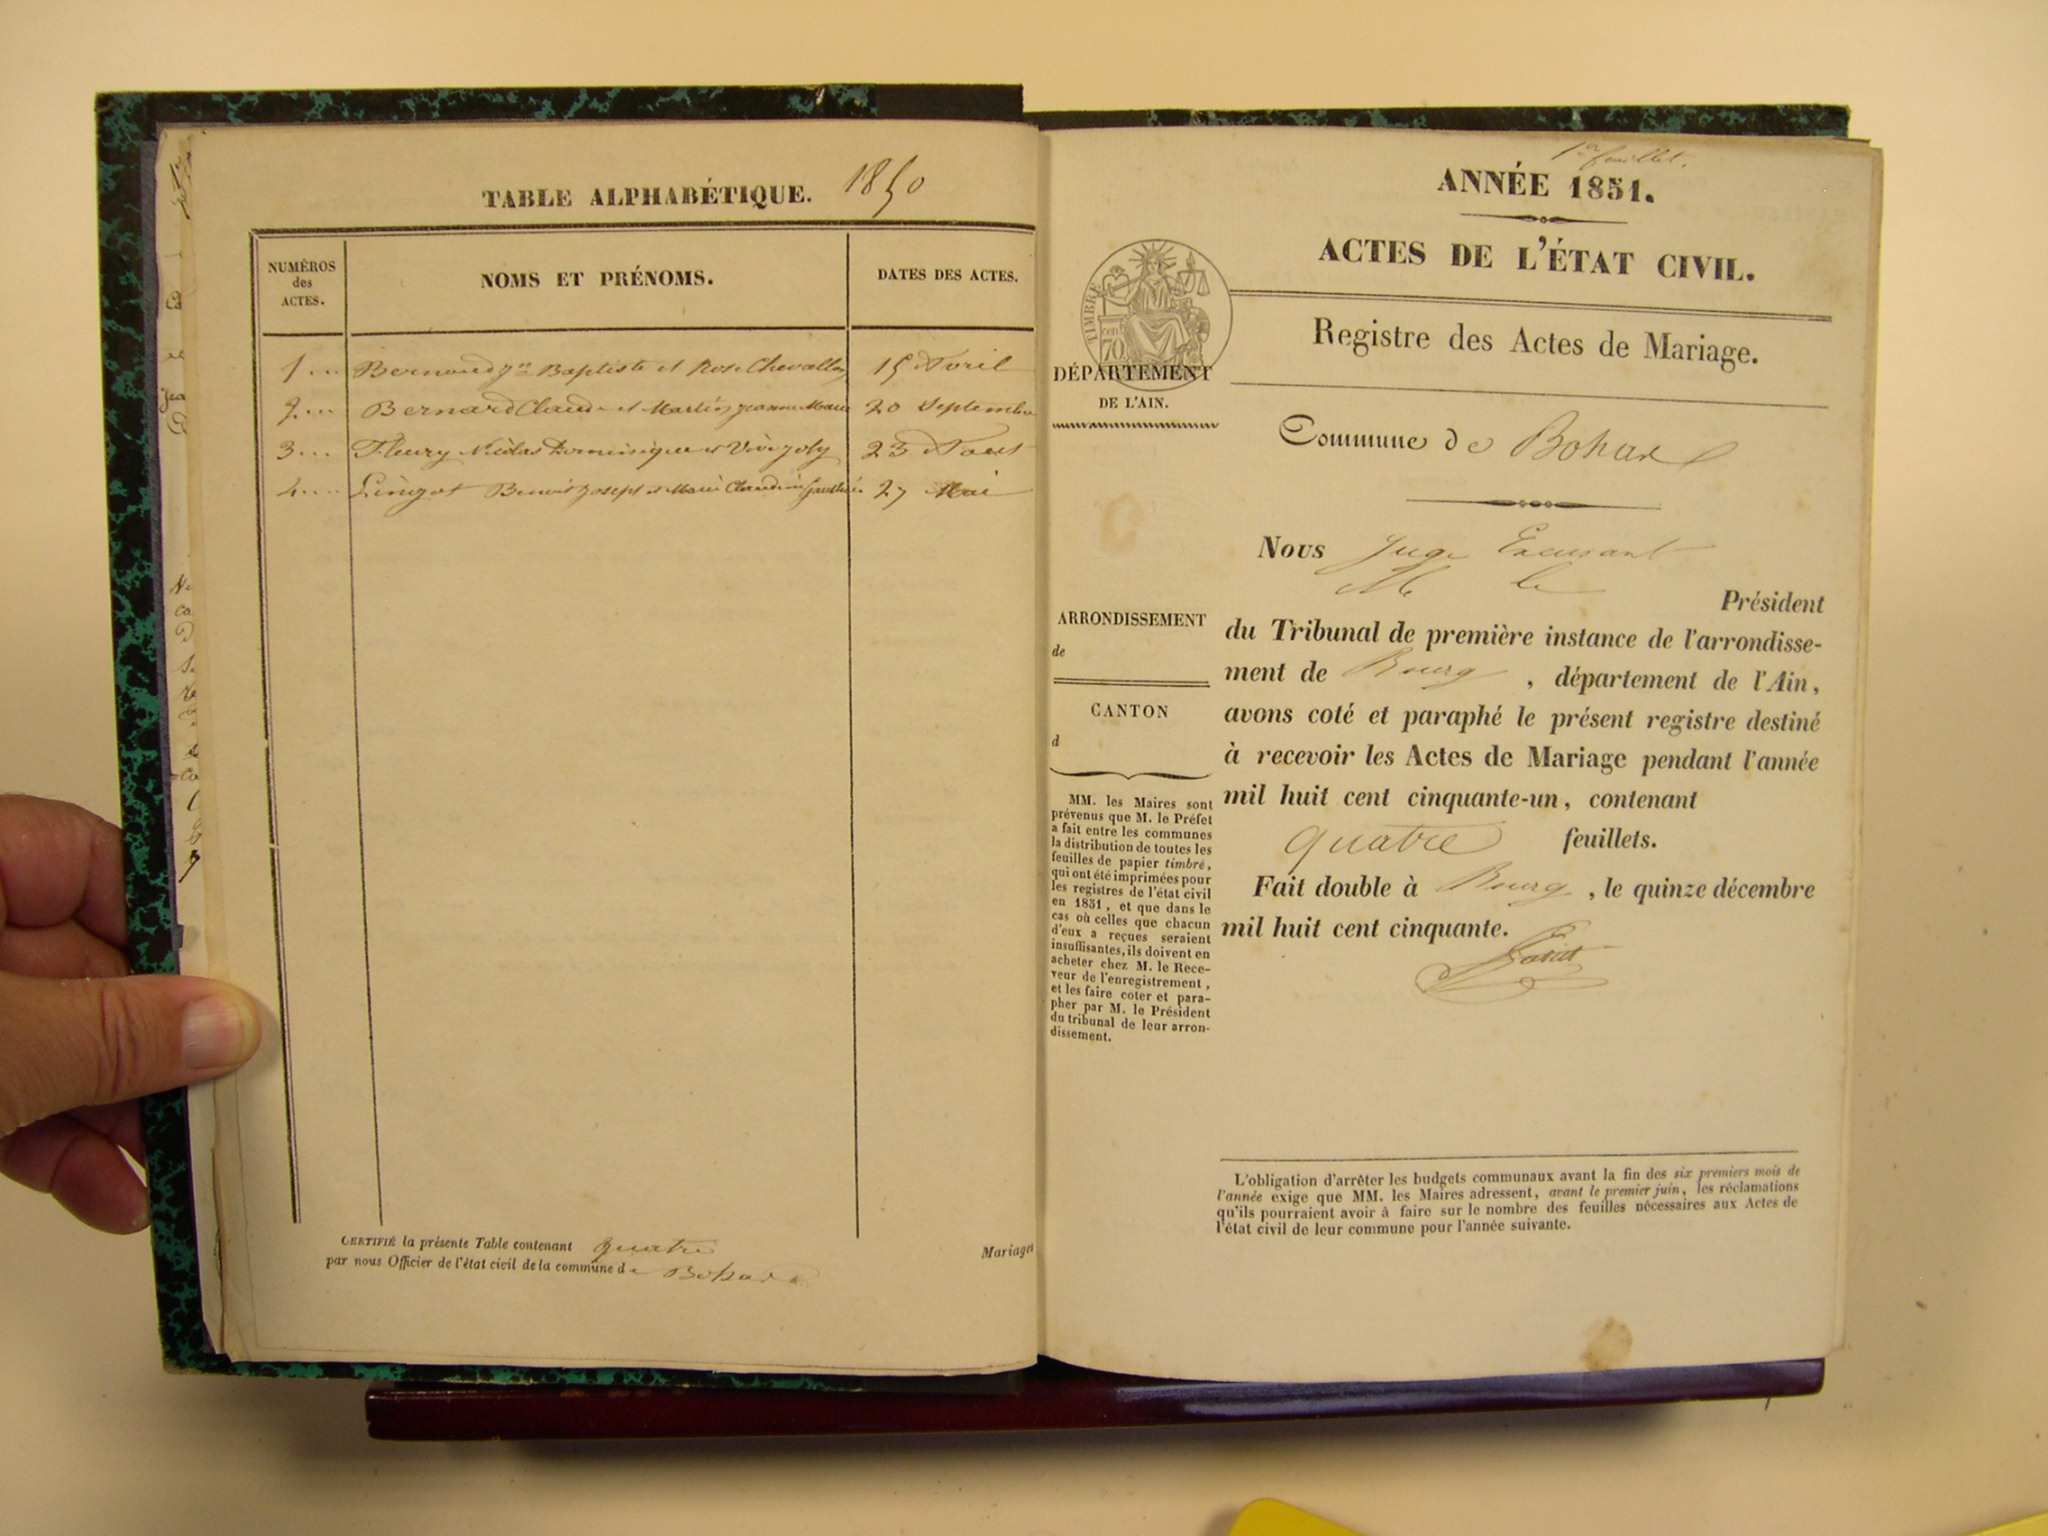 TABLE ALPHABÉTIQUE. 1850
NUMÉROS
des
ACTES.
NOMS ET PRÉNOMS.
DATES DES ACTES.
1... Bernoud Baptiste et Rose Chevallon 15 Avril
2... Bernard Claude et Jeanne Marie 20 Septembre
3... Fleury Nicolas Dominique et Joly 23 Aout
4.... Lingot Benoit Joseph et Marie Claudine 27 Mai
CERTIFIÉ la présente Table contenant quatre
par nous Officier de l'état civil de la commune de Bohas
Mariages
1er feuillet.
ANNÉE 1851.
ACTES DE L'ÉTAT CIVIL.
TIMBRE
cent
70
Registre des Actes de Mariage.
DÉPARTEMENT
DE L'AIN.
Commune de Bohas
Nous Juge
M le
Président
du Tribunal de première instance de l'arrondisse-
ment de Bourg, département de l'Ain,
avons coté et paraphé le présent registre destiné
à recevoir les Actes de Mariage pendant l'année
mil huit cent cinquante-un, contenant
quatre feuillets.
Fait double à Bourg, le quinze décembre
mil huit cent cinquante.
ARRONDISSEMENT
de
CANTON
d
MM. les Maires sont
prévenus que M. le Préfet
a fait entre les communes
la distribution de toutes les
feuilles de papier timbré,
qui ont été imprimées pour
les registres de l'état civil
en 1851, et que dans le
cas où celles que chacun
d'eux a reçues seraient
insuffisantes, ils doivent en
acheter chez M. le Rece-
veur de l'enregistrement,
et les faire coter et para-
pher par M. le Président
du tribunal de leur arron-
dissement.
L'obligation d'arrêter les budgets communaux avant la fin des six premiers mois de
l'année exige que MM. les Maires adressent, avant le premier juin, les réclamations
qu'ils pourraient avoir à faire sur le nombre des feuilles nécessaires aux Actes de
l'état civil de leur commune pour l'année suivante.